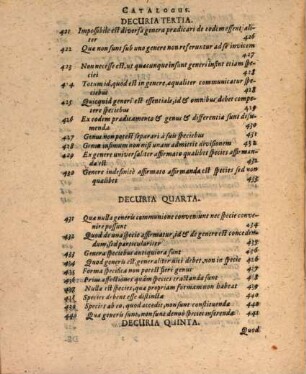 CATALOGUS.
DECURIA TERTIA.
421 Impossibile est diversa genera prædicari de eodem essentialiter 426
422 Quæ non sunt sub uno genere non referuntur ad se invicem
423 Non necesse est, ut quæcunque insunt generi insint etiam speciei 428
424 Totum id, quod est in genere, æqualiter communicatur speciebus
425 Quicquid generi est essentiale, id & omnibus debet competere speciebus
426 Ex eodem prædicamento & genus & differentia sunt sumenda 433
427 Genus non potest separari à suis speciebus
428 Genus infimum non nisi unam admittit divisionem
429 Ex genere universaliter affirmato quælibet species affirmanda est
430 Genere indefinitè affirmato affirmanda est species sed non quælibet
DECURIA QUARTA.
431 Quæ nulla generis communione conveniunt nec specie convenire possunt
432 Quod de una specie affirmatur, id & de genere est concedendum, sed particulariter 439
433 Genera speciebus antiquiora sunt
434 Quod generis est generaliter dici debet, non in specie
435 Forma specifica non potest fieri genus
436 Prius affectiones quàm species tractandæ sunt
437 Nulla est species, quæ propriam formam non habeat
438 Species debent esse distinctæ
439 Species ab eo, quod accedit, non sunt constituendæ
440 Quæ generis sunt, non sunt denuò speciei inserenda
DECURIA QUINTA.
Quod